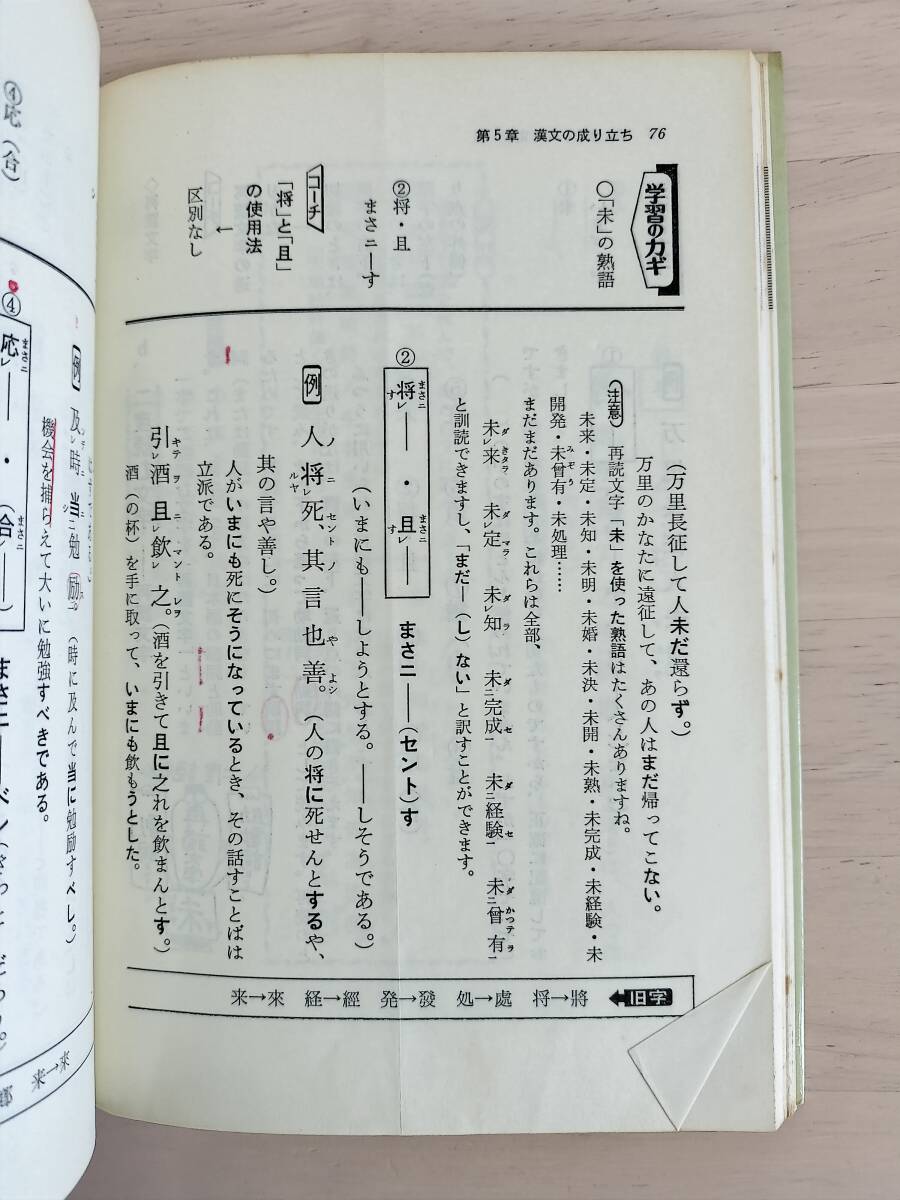 第5章 漢文の成り立ち 76
学習のカギ
○「未」の熟語
②将・且
まさニ―す
コーチ
「将」と「且」
の使用法
↓
区別なし
(万里長征して人未だ還らず。)
万里のかなたに遠征して、あの人はまだ帰ってこない。
(注意) 再読文字「未」を使った熟語はたくさんありますね。
未来・未定・未知・未明・未婚・未決・未開・未熟・未完成・未経験・未
開発・未曾有・未処理……
まだまだあります。これらは全部、
未レ来 未レ定 未レ知 未二完成一 未二経験一 未二曾有一
と訓読できますし、「まだ―(し)ない」と訳すことができます。
② 将レ―― ・ 且レ―― まさニ――(セント)す
(いまにも―しようとする。―しそうである。)
例 人ノ将ニレ死セント、其ノ言也や善よシ。(人の将に死せんとするや、
其の言や善し。)
人がいまにも死にそうになっているとき、その話すことばは
立派である。
引キテレ酒ヲ且ニレ飲マントレ之レヲ。(酒を引きて且に之れを飲まんとす。)
酒(の杯)を手に取って、いまにも飲もうとした。
旧字
将→將 処→處 発→發 経→經 来→來
④応(合)
④ 応レ―― ・ (合レ――)
例 及レ時当勉励(時に及んで当に勉励すべし。)
機会を捕らえて大いに勉強すべきである。
来→來